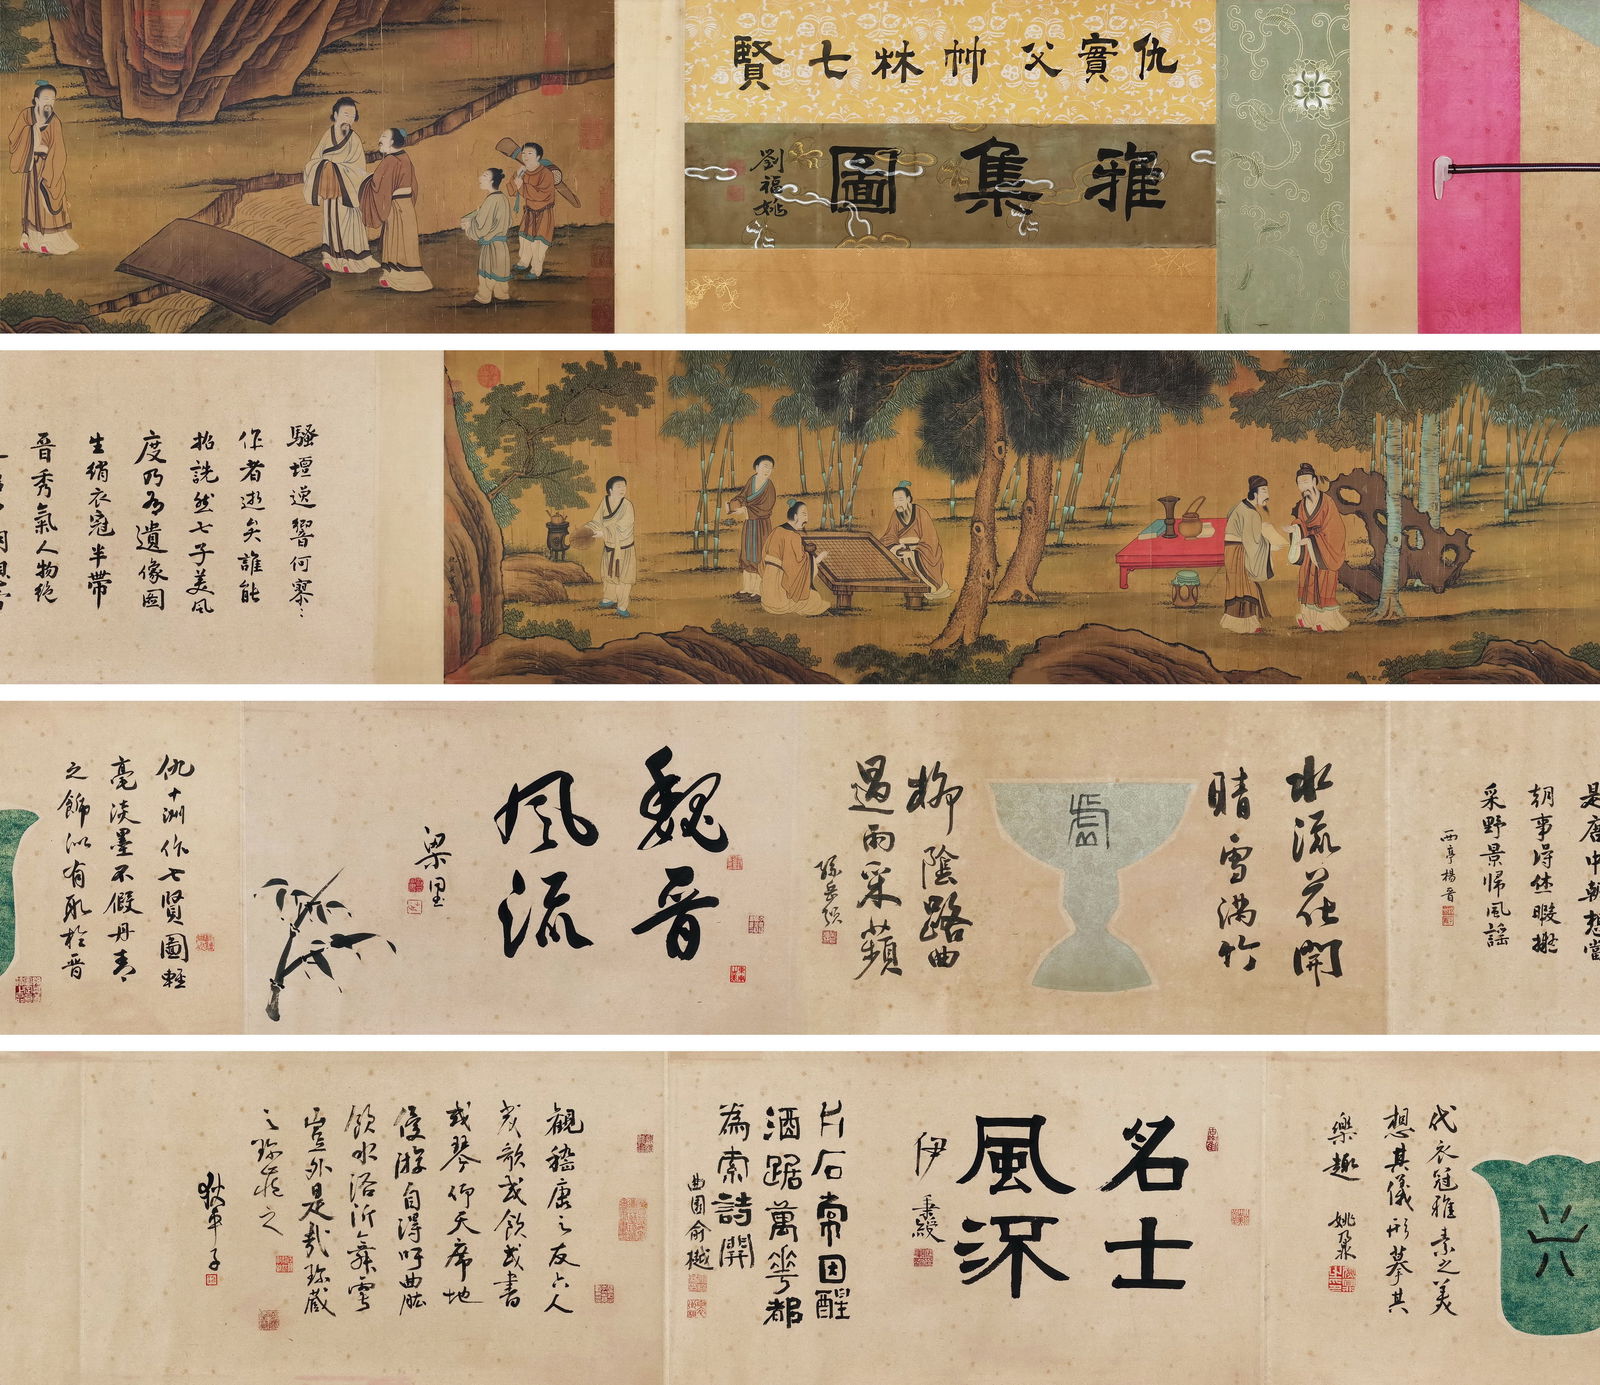 仇實父竹林七賢
雅集圖
劉福姚
騷壇逸響何寥〻
作者逝矣誰能
招詵然七子美風
度乃有遺像圖
生綃衣冠半帶
晉秀氣人物絕
是唐中朝想當
朝事得休暇擬
采野景歸風謠
西亭楊晉
水流花開
晴雪滿竹
柳陰路曲
過雨采蘋
孫岳頒
魏晉
風流
梁同書
仇十洲作七賢圖輕
毫淡墨不假丹青
之飾似有取於晉
代衣冠雅素之美
想其儀形摹其
樂趣
姚鼐
名士
風流
伊秉綬
片石常因醒
酒踞萬花都
為索詩開
曲園俞樾
觀嵇康之友六人
或歌或飲或書
或琴仰天席地
優游自得呼曲肱
飲水浴沂舞雩
豈外是哉珍藏
之珍藏之
狄平子